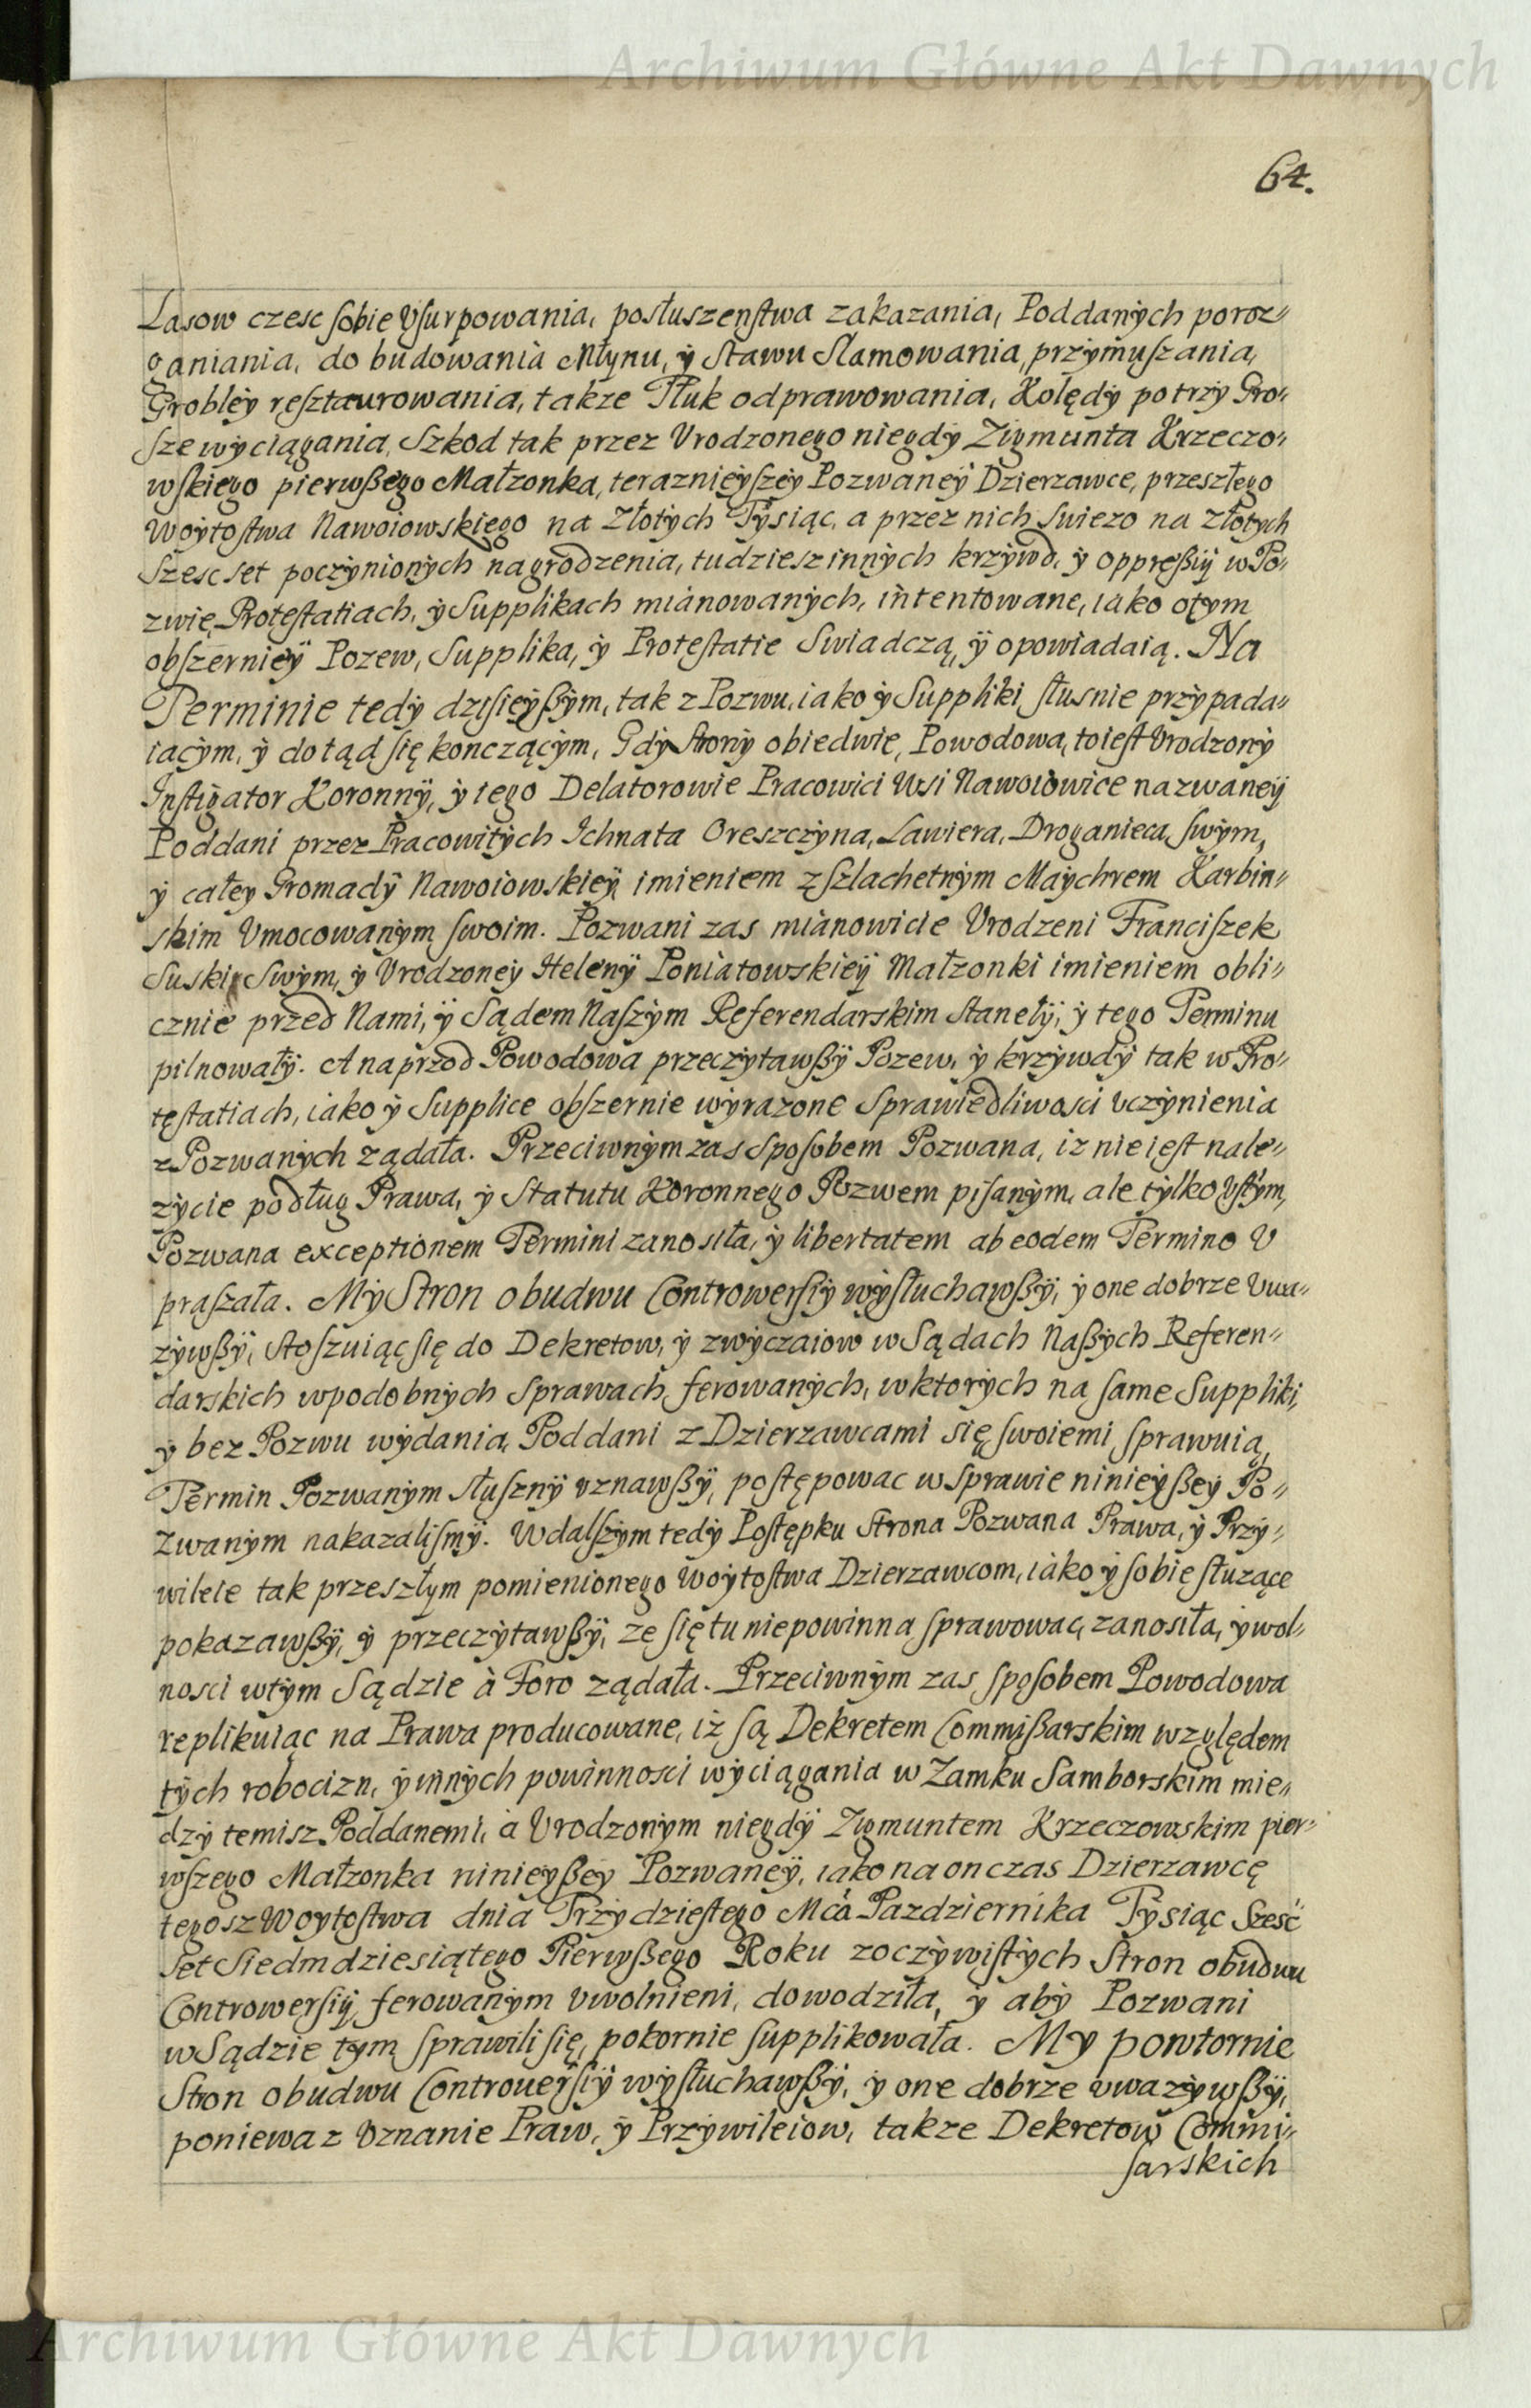 Archiwum Główne Akt Dawnych
64.
Lasow czesc sobie Vsurpowania, posłuszenstwa zakazania, Poddanych poroz„
ganiania, do budowania Młynu, y stawu Słamowania, przymuszania,
Grobley resztaurowania, takze Tłuk odprawowania, Kolędy po trzy Gro„
sze wyciągania, Szkod tak przez Vrodzonego niegdy Zigmunta Krzeczo„
wskiego pierwßego Małzonka, teraznieyszey Pozwaney Dzierzawce, przeszłego
Woytostwa Nawoiowskiego na Złotych Tysiąc, a przez nich swiezo na złotych
Szesc set poczynionych nagrodzenia, tudziesz innych krzywd, y oppreßiy w Po„
zwie, Protestatiach, y Supplikach mianowanych, intentowane, iako o tym
obszerniey Pozew, Supplika, y Protestatie Swiadczą, y opowiadaią. Na
Terminie tedy dzisieyßym, tak z Pozwu, iako y Suppliki słusnie przypada„
iącym, y dotąd się konczącym, Gdy Strony obiedwie, Powodowa, to iest Vrodzony
Instigator Koronny, y iego Delatorowie Pracowici Wsi Nawoiowice nazwaney
Poddani przez Pracowitych Ichnata Oreszczyna, Lawiera, Droganieca, swym,
y całey Gromady Nawoiowskiey imieniem z Szlachetnym Maychrem Karbin„
skim Vmocowanym swoim. Pozwani zas mianowicie Vrodzeni Franciszek
Suski, Swym, y Vrodzoney Heleny Poniatowskiey Małzonki imieniem obli„
cznie przed Nami, y Sądem Naszym Referendarskim staneły, y tego Terminu
pilnowały. A naprzod Powodowa przeczytawßy Pozew, y krzywdy tak w Pro„
testatiach, iako y Supplice obszernie wyrazone Sprawiedliwosci vczynienia
z Pozwanych ządała. Przeciwnym zas Sposobem Pozwana, iz nie iest nale„
zycie podług Prawa, y Statutu Koronnego Pozwem pisanym, ale tylko Vstym,
Pozwana exceptionem Termini zanosiła, y libertatem ab eodem Termino V
praszała. My Stron obudwu Controwersiy wysłuchawßy, y one dobrze Vwa„
zywßy, stoszuiąc się do Dekretow, y zwyczaiow w Sądach Naßych Referen„
darskich w podobnych Sprawach ferowanych, w ktorych na same Suppliki,
y bez Pozwu wydania, Poddani z Dzierzawcami się swoiemi sprawuią,
Termin Pozwanym słuszny vznawßy, postępowac w Sprawie ninieyßey Po„
zwanym nakazalismy. W dalszym tedy Postępku Strona Pozwana Prawa, y Przy„
wileie tak przeszłym pomienionego Woytostwa Dzierzawcom, iako y sobie słuzące
pokazawßy, y przeczytawßy, ze się tu nie powinna sprawowac, zanosiła, y wol„
nosci w tym Sądzie à Foro ządała. Przeciwnym zas sposobem Powodowa
replikuiąc na Prawa producowane, iż są Dekretem Commißarskim względem
tych robocizn, y innych powinnosci wyciągania w Zamku Samborskim mie„
dzy temisz Poddanemi, à Vrodzonym niegdy Zigmuntem Krzeczowskim pier„
wszego Małzonka ninieyßey Pozwaney, iako na on czas Dzierzawcę
tegosz Woytostwa dnia Trzydziestego Mcá Pazdziernika Tysiąc Sześć
Set Siedmdziesiątego Pierwßego Roku z oczywistych Stron obudwu
Controwersiy ferowanym vwolnieni, dowodziła, y aby Pozwani
w Sądzie tym sprawili się, pokornie supplikowała. My powtornie
Stron obudwu Controuersiy wysłuchawßy, y one dobrze vwazywßy,
poniewaz Vznanie Praw, y Przywileiow, takze Dekretow Commi„
sarskich
Archiwum Główne Akt Dawnych